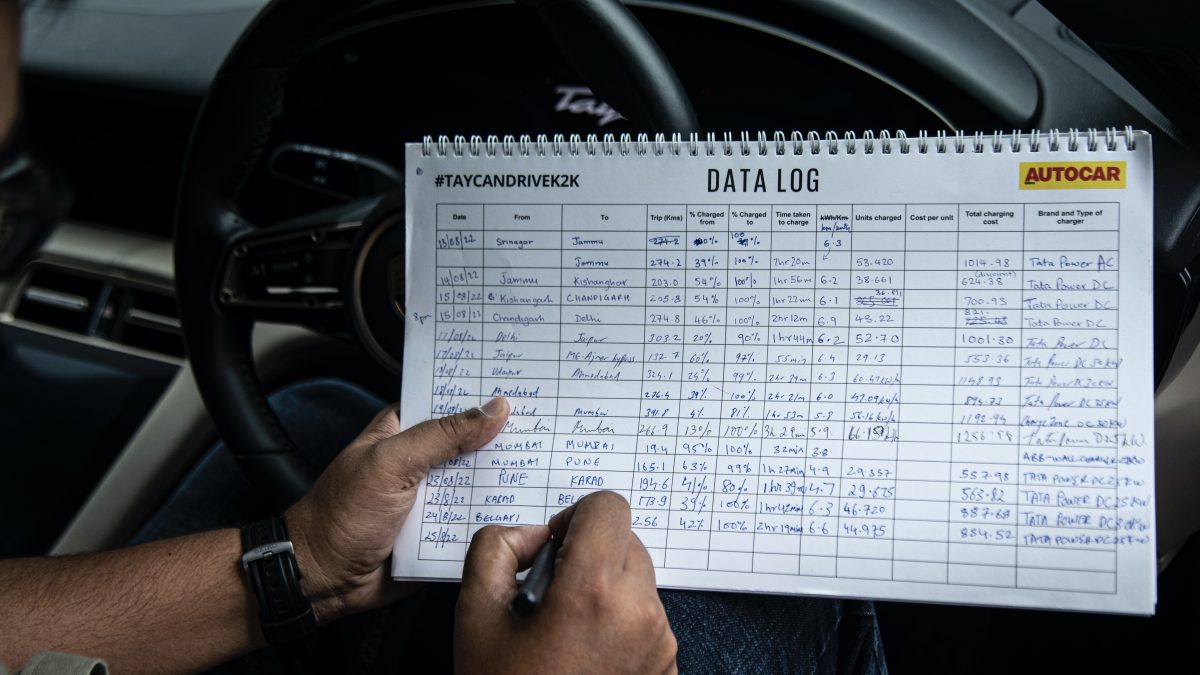 Tay
#TAYCANDRIVEK2K DATA LOG AUTOCAR
Date From To Trip (Kms) % Charged from % Charged to Time taken to charge kWh/Km km/unit Units charged Cost per unit Total charging cost Brand and Type of charger
13/08/22 Srinagar Jammu 274.2 100% 6.3
Jammu 274.2 39% 100% 7hr20m 53.420 1014.98 Tata Power AC
14/08/22 Jammu Kishanghar 203.0 54% 100% 1hr56m 6.2 38.661 (discount) 624.38 Tata Power DC
15/08/22 Kishangarh CHANDIGARH 205.8 54% 100% 1hr22m 6.1 700.93 Tata Power DC
8pm 15/08/22 Chandigarh Delhi 274.8 46% 100% 2hr12m 6.9 48.22 821. Tata Power DC
17/08/22 Delhi Jaipur 303.2 20% 90% 1hr44m 6.2 52.70 1001.30 Tata Power DC
17/08/22 Jaipur Ajmer bypass 132.7 60% 97% 55min 6.4 29.13 553.36 Tata Power DC 30KW
Udaipur Ahmedabad 324.1 24% 99% 6.3 1148.93 Tata Power DC
Ahmedabad 276.4 39% 100% 6.0 894.73 Tata Power DC
19/08/22 Mumbai 391.8 4% 81% 1hr 53m 5.8 1192.94
Mumbai Mumbai 266.9 13% 100% 3h 29m 5.9 Tata Power
MUMBAI MUMBAI 19.4 95% 100% 32min 3.8
MUMBAI PUNE 165.1 63% 99% 1hr27min 4.9 29.357 557.98 TATA POWER DC25KW
23/08/22 PUNE KARAD 194.6 41% 80% 1hr39m 4.7 29.675 563.82 TATA POWER DC25KW
23/8/22 KARAD 39% 100% 1hr42min 6.3 46.720 887.68 TATA POWER DC
24/8/22 256 42% 100% 2hr19min 6.6 44.975 854.52 TATA POWER DC
25/8/22